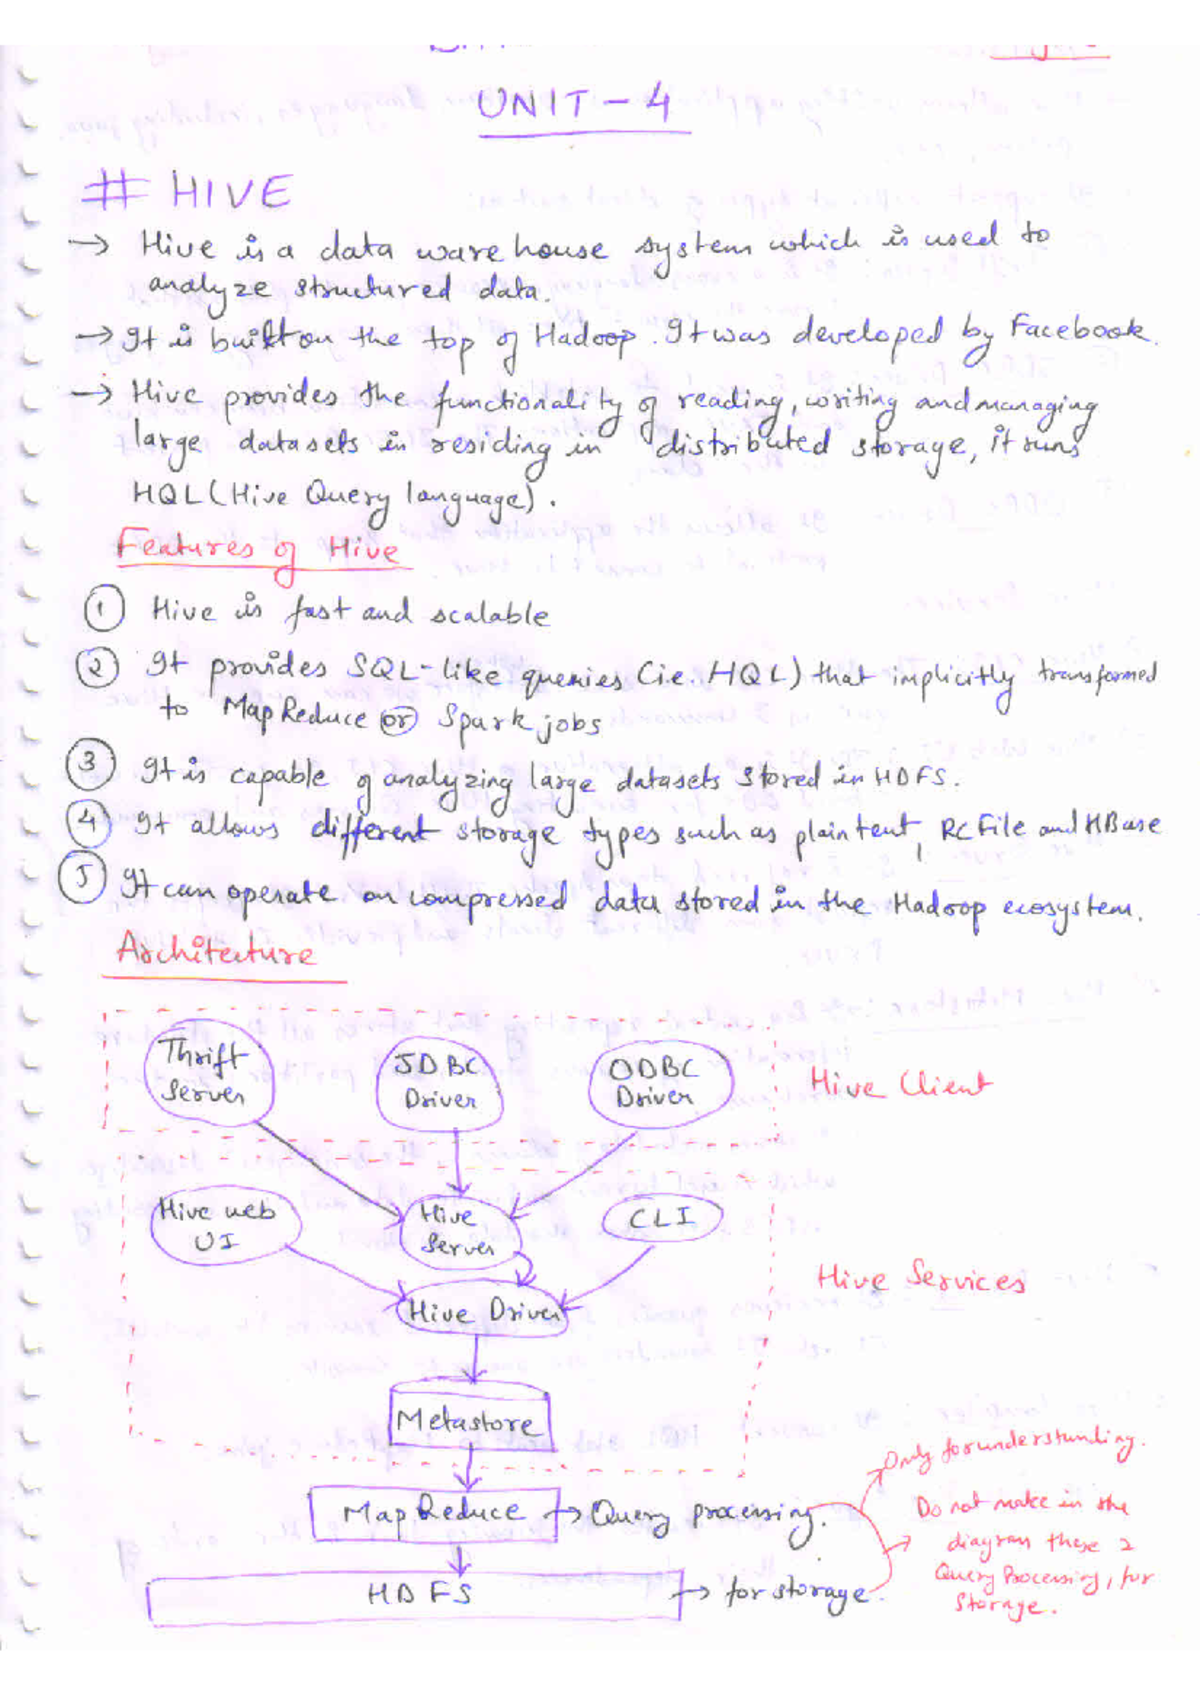 UNIT - 4
# HIVE
→ Hive is a data ware house system which is used to
analyze structured data.
→ It is built on the top of Hadoop. It was developed by Facebook.
→ Hive provides the functionality of reading, writing and managing
large datasets in residing in distributed storage, it runs
HQL (Hive Query language).
Features of Hive
① Hive is fast and scalable
② It provides SQL-like queries (i.e. HQL) that implicitly transformed
to MapReduce or Spark jobs
③ It is capable of analyzing large datasets stored in HDFS.
④ It allows different storage types such as plain text, RC File and HBase
⑤ It can operate on compressed data stored in the Hadoop ecosystem.
Architecture
Thrift
Server
JDBC
Driver
ODBC
Driver
Hive Client
Hive web
UI
Hive
Server
CLI
Hive Services
Hive Driver
Metastore
Only for understanding.
Map Reduce → Query processing.
Do not make in the
diagram these 2
Query Processing, for
Storage.
HDFS → for storage.